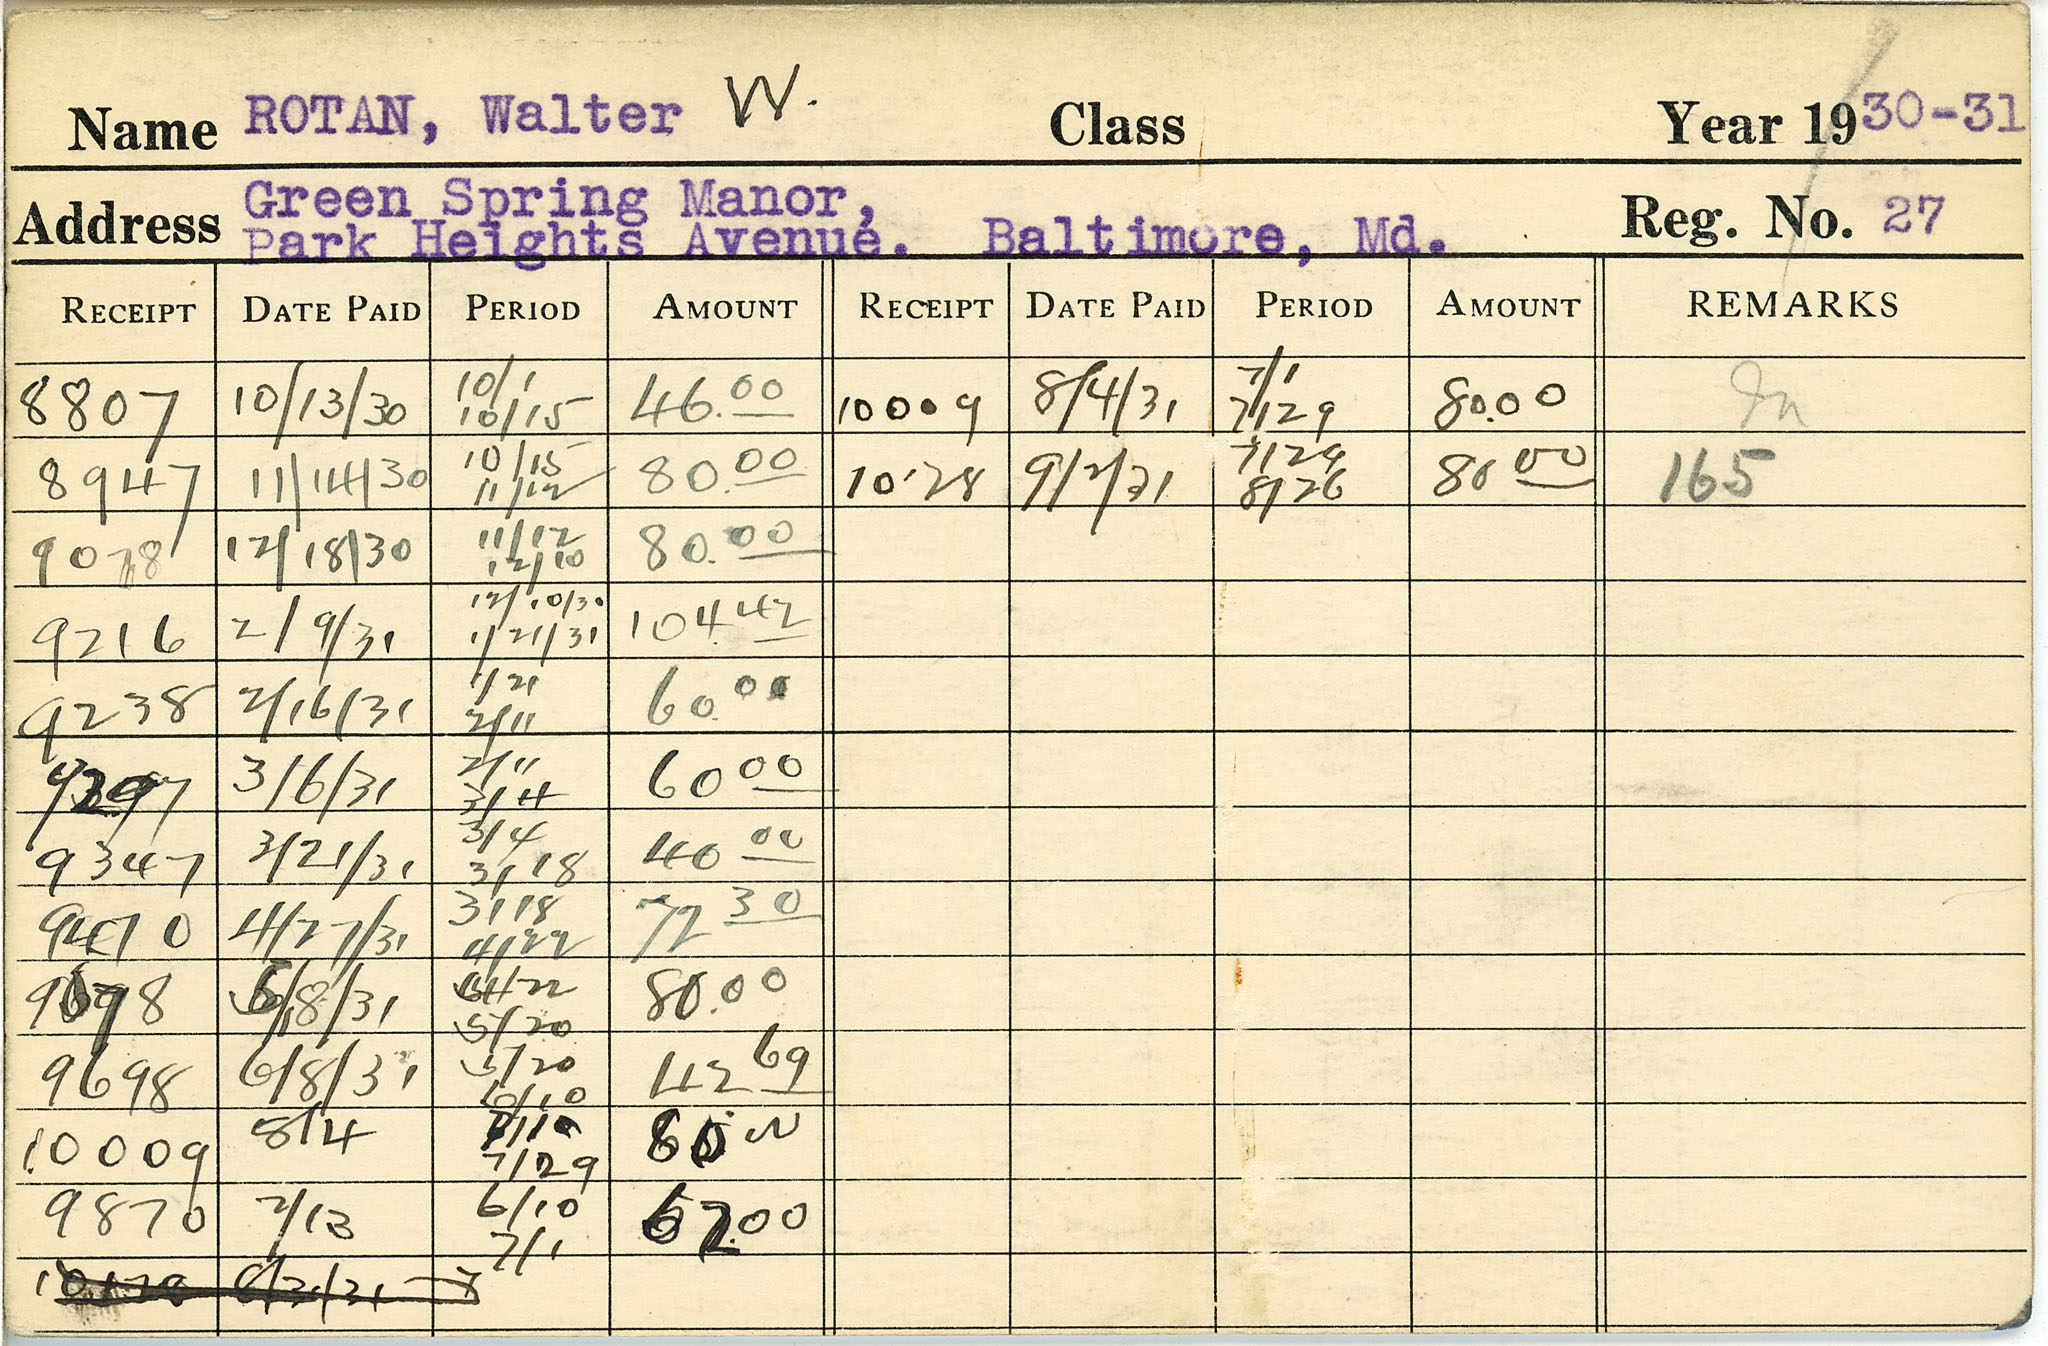 Name ROTAN, Walter W. Class Year 1930-31
Address Green Spring Manor, Reg. No. 27
Park Heights Avenue. Baltimore, Md.
RECEIPT DATE PAID PERIOD AMOUNT RECEIPT DATE PAID PERIOD AMOUNT REMARKS
10/1 7/1
8807 10/13/30 10/15 46.00 10009 8/4/31 7/29 80.00 In
10/15 7/29
8947 11/14/30 11/12 80.00 10128 9/2/31 8/26 80 00 165
11/12
9078 12/18/30 12/10 80.00
12/10/30
9216 2/9/31 1/21/31 104.42
1/21
9238 2/16/31 2/11 60.00
2/11
9297 3/6/31 3/4 60 00
3/4
9347 3/21/31 3/18 40 00
3/18
9470 4/27/31 4/22 72 30
4/22
5/20 80.00
5/20
9698 6/8/31 6/10 42 69
10009 8/4 7/29
6/10
9870 7/13 7/1 62.00